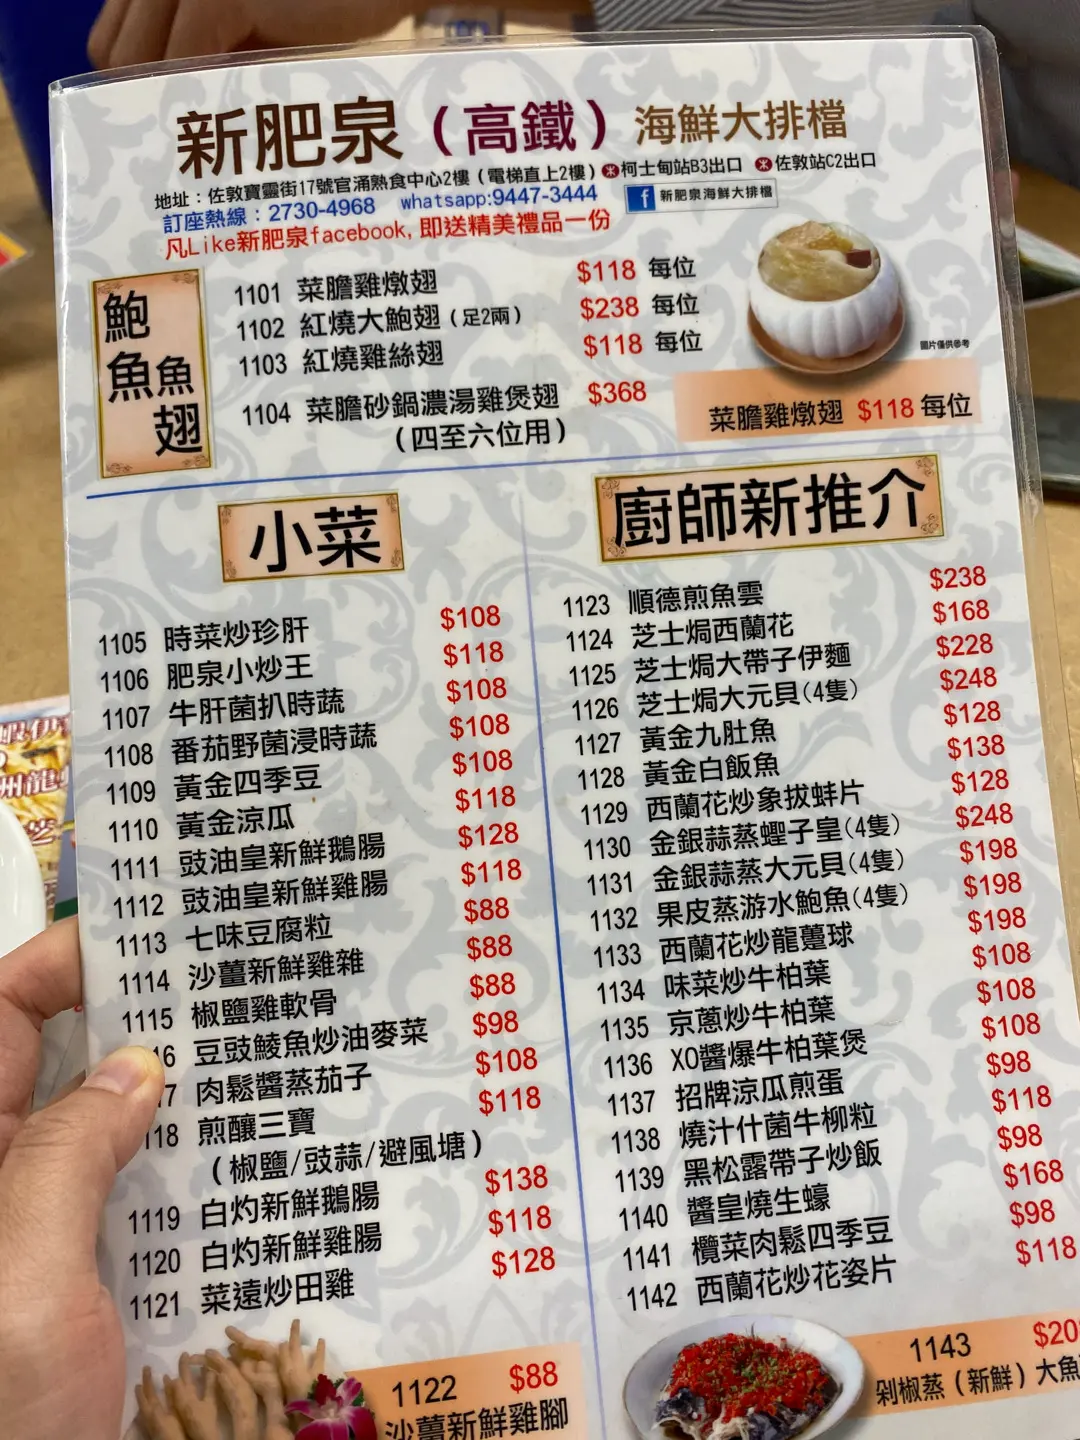 新肥泉（高鐵）海鮮大排檔
地址：佐敦寶靈街17號官涌熟食中心2樓（電梯直上2樓） 柯士甸站B3出口 佐敦站C2出口
訂座熱線：2730-4968 whatsapp:9447-3444 f 新肥泉海鮮大排檔
凡Like新肥泉facebook,即送精美禮品一份
鮑魚魚翅
1101 菜膽雞燉翅 $118 每位
1102 紅燒大鮑翅（足2兩） $238 每位
1103 紅燒雞絲翅 $118 每位
1104 菜膽砂鍋濃湯雞煲翅 $368
（四至六位用）
圖片僅供參考
菜膽雞燉翅 $118 每位
小菜
1105 時菜炒珍肝 $108
1106 肥泉小炒王 $118
1107 牛肝菌扒時蔬 $108
1108 番茄野菌浸時蔬 $108
1109 黃金四季豆 $108
1110 黃金涼瓜 $118
1111 豉油皇新鮮鵝腸 $128
1112 豉油皇新鮮雞腸 $118
1113 七味豆腐粒 $88
1114 沙薑新鮮雞雜 $88
1115 椒鹽雞軟骨 $88
16 豆豉鯪魚炒油麥菜 $98
17 肉鬆醬蒸茄子 $108
118 煎釀三寶 $118
（椒鹽/豉蒜/避風塘）
1119 白灼新鮮鵝腸 $138
1120 白灼新鮮雞腸 $118
1121 菜遠炒田雞 $128
1122 $88
沙薑新鮮雞腳
廚師新推介
1123 順德煎魚雲 $238
1124 芝士焗西蘭花 $168
1125 芝士焗大帶子伊麵 $228
1126 芝士焗大元貝(4隻) $248
1127 黃金九肚魚 $128
1128 黃金白飯魚 $138
1129 西蘭花炒象拔蚌片 $128
1130 金銀蒜蒸蟶子皇(4隻) $248
1131 金銀蒜蒸大元貝(4隻) $198
1132 果皮蒸游水鮑魚(4隻) $198
1133 西蘭花炒龍躉球 $198
1134 味菜炒牛柏葉 $108
1135 京蔥炒牛柏葉 $108
1136 XO醬爆牛柏葉煲 $108
1137 招牌涼瓜煎蛋 $98
1138 燒汁什菌牛柳粒 $118
1139 黑松露帶子炒飯 $98
1140 醬皇燒生蠔 $168
1141 欖菜肉鬆四季豆 $98
1142 西蘭花炒花姿片 $118
1143 $20
剁椒蒸（新鮮）大魚